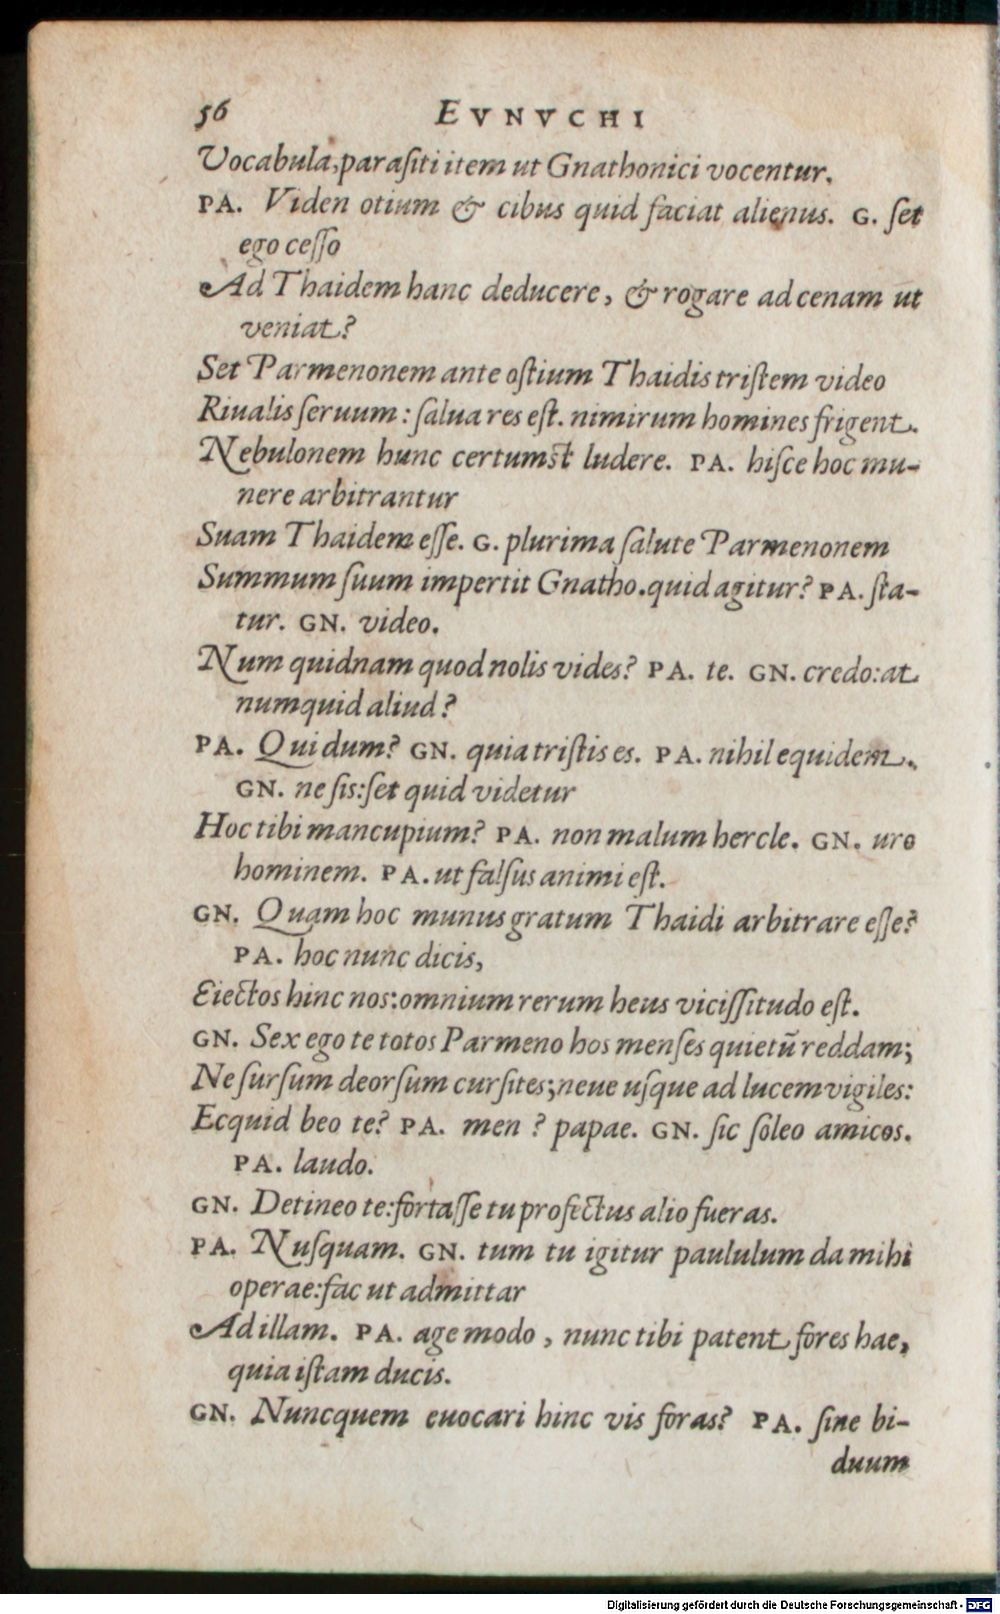 56 EVNVCHI
Vocabula, parasiti item ut Gnathonici vocentur.
PA. Viden otium & cibus quid faciat alienus. G. set
ego cesso
Ad Thaidem hanc deducere, & rogare ad cenam ut
veniat?
Set Parmenonem ante ostium Thaidis tristem video
Riualis seruum: salua res est. nimirum homines frigent.
Nebulonem hunc certumst ludere. PA. hisce hoc mu-
nere arbitrantur
Suam Thaidem esse. G. plurima salute Parmenonem
Summum suum impertit Gnatho. quid agitur? PA. sta-
tur. GN. video.
Num quidnam quod nolis vides? PA. te. GN. credo: at
numquid aliud?
PA. Qui dum? GN. quia tristis es. PA. nihil equidem.
GN. ne sis: set quid videtur
Hoc tibi mancupium? PA. non malum hercle. GN. uro
hominem. PA. ut falsus animi est.
GN. Quam hoc munus gratum Thaidi arbitrare esse?
PA. hoc nunc dicis,
Eiectos hinc nos: omnium rerum heus vicissitudo est.
GN. Sex ego te totos Parmeno hos menses quietū reddam;
Ne sursum deorsum cursites; neue usque ad lucem vigiles:
Ecquid beo te? PA. men? papae. GN. sic soleo amicos.
PA. laudo.
GN. Detineo te: fortasse tu profectus alio fueras.
PA. Nusquam. GN. tum tu igitur paululum da mihi
operae: fac ut admittar
Ad illam. PA. age modo, nunc tibi patent fores hae,
quia istam ducis.
GN. Nuncquem euocari hinc vis foras? PA. sine bi-
duum
Digitalisierung gefördert durch die Deutsche Forschungsgemeinschaft - DFG